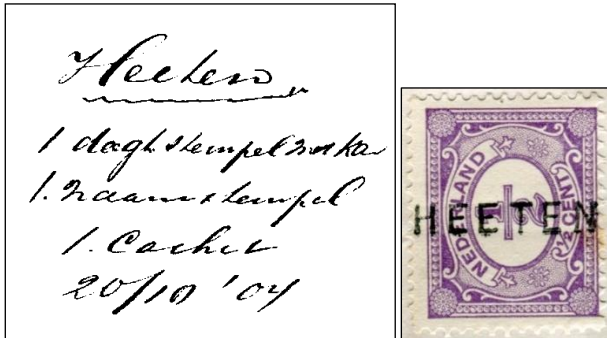 Heeten
1 stempel met
1. naamstempel
1. Cachet
20/10 '04
NEDERLAND
½
½ CENT
HEETEN